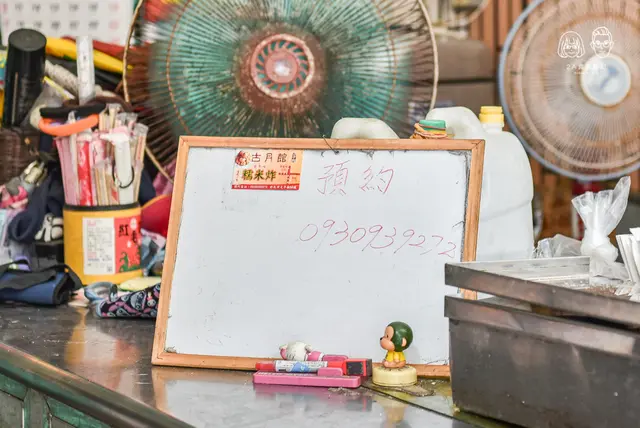 古月館
糯米炸
預約
0930939272
紅